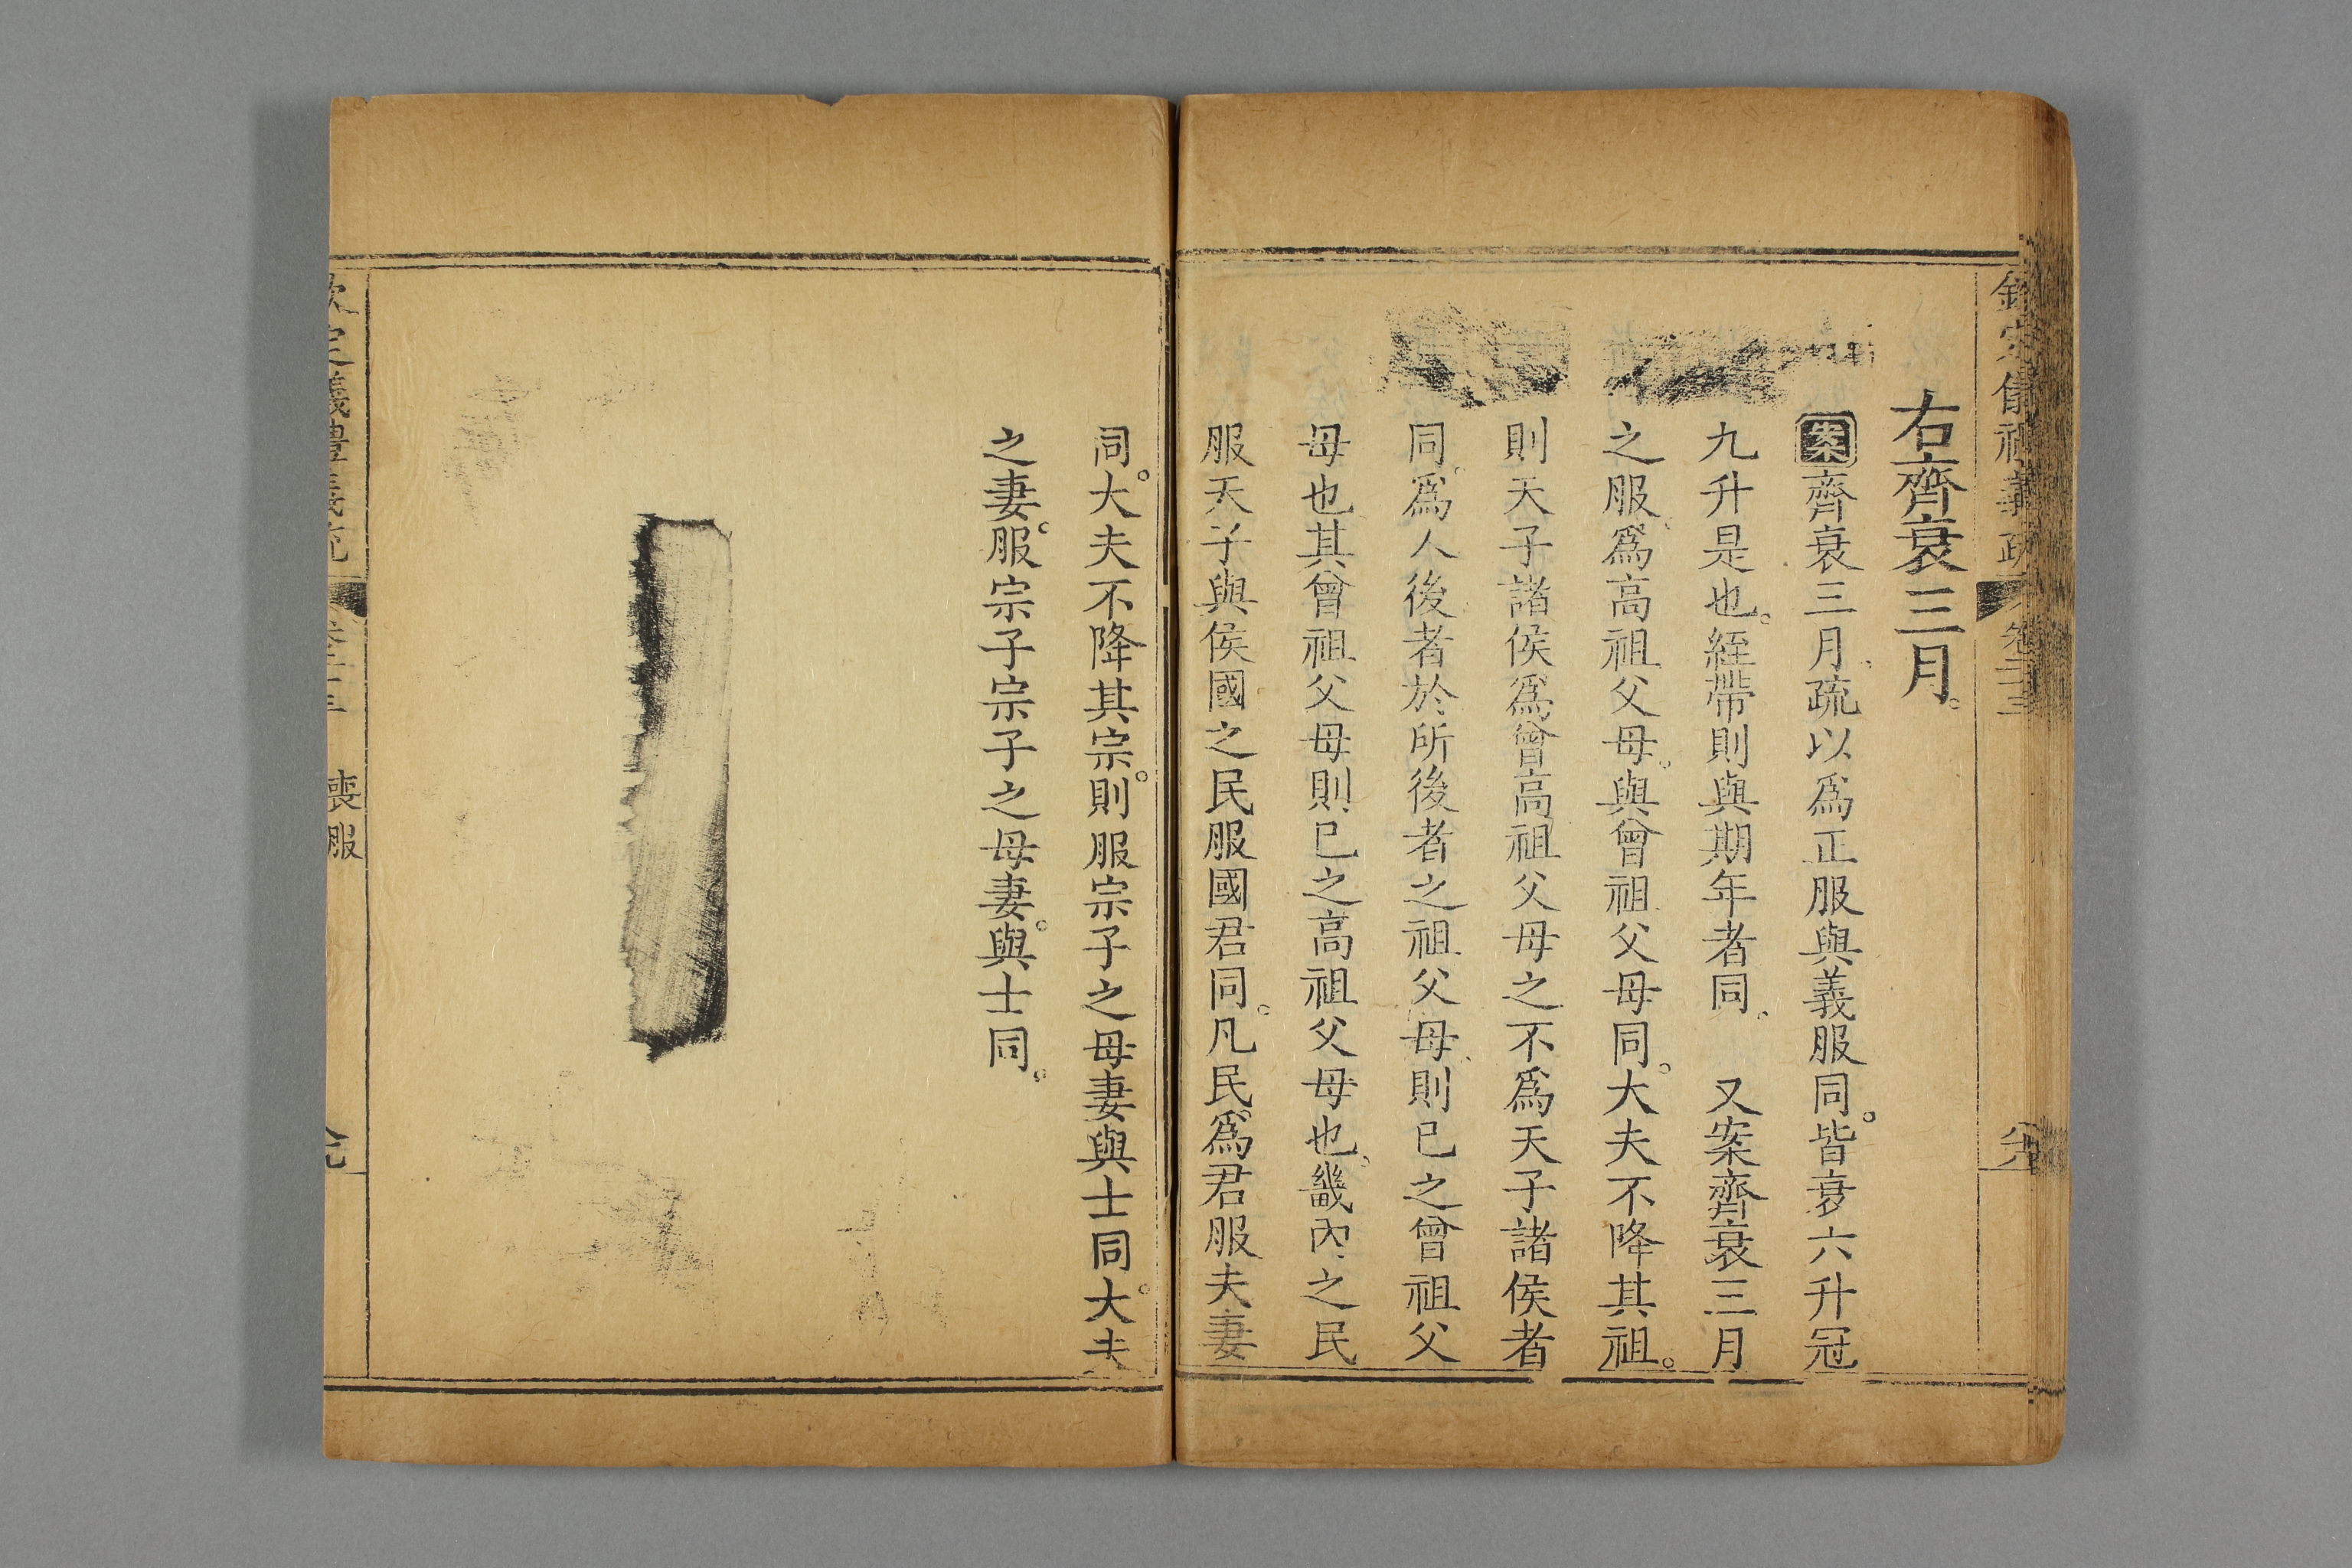 欽定儀禮義疏 卷二十三
右齊衰三月。
案齊衰三月疏以為正服與義服同。皆衰六升冠
九升是也。絰帶則與期年者同。 又案齊衰三月
之服為高祖父母。與曾祖父母同。大夫不降其祖。
則天子諸侯為曾高祖父母之不為天子諸侯者
同。為人後者於所後者之祖父母。則已之曾祖父
母也其曾祖父母則已之高祖父母也。畿內之民
服天子與侯國之民服國君同。凡民為君服夫妻
同。大夫不降其宗。則服宗子之母妻與士同。大夫
之妻。服宗子宗子之母妻。與士同。
欽定儀禮義疏 卷二十三 喪服